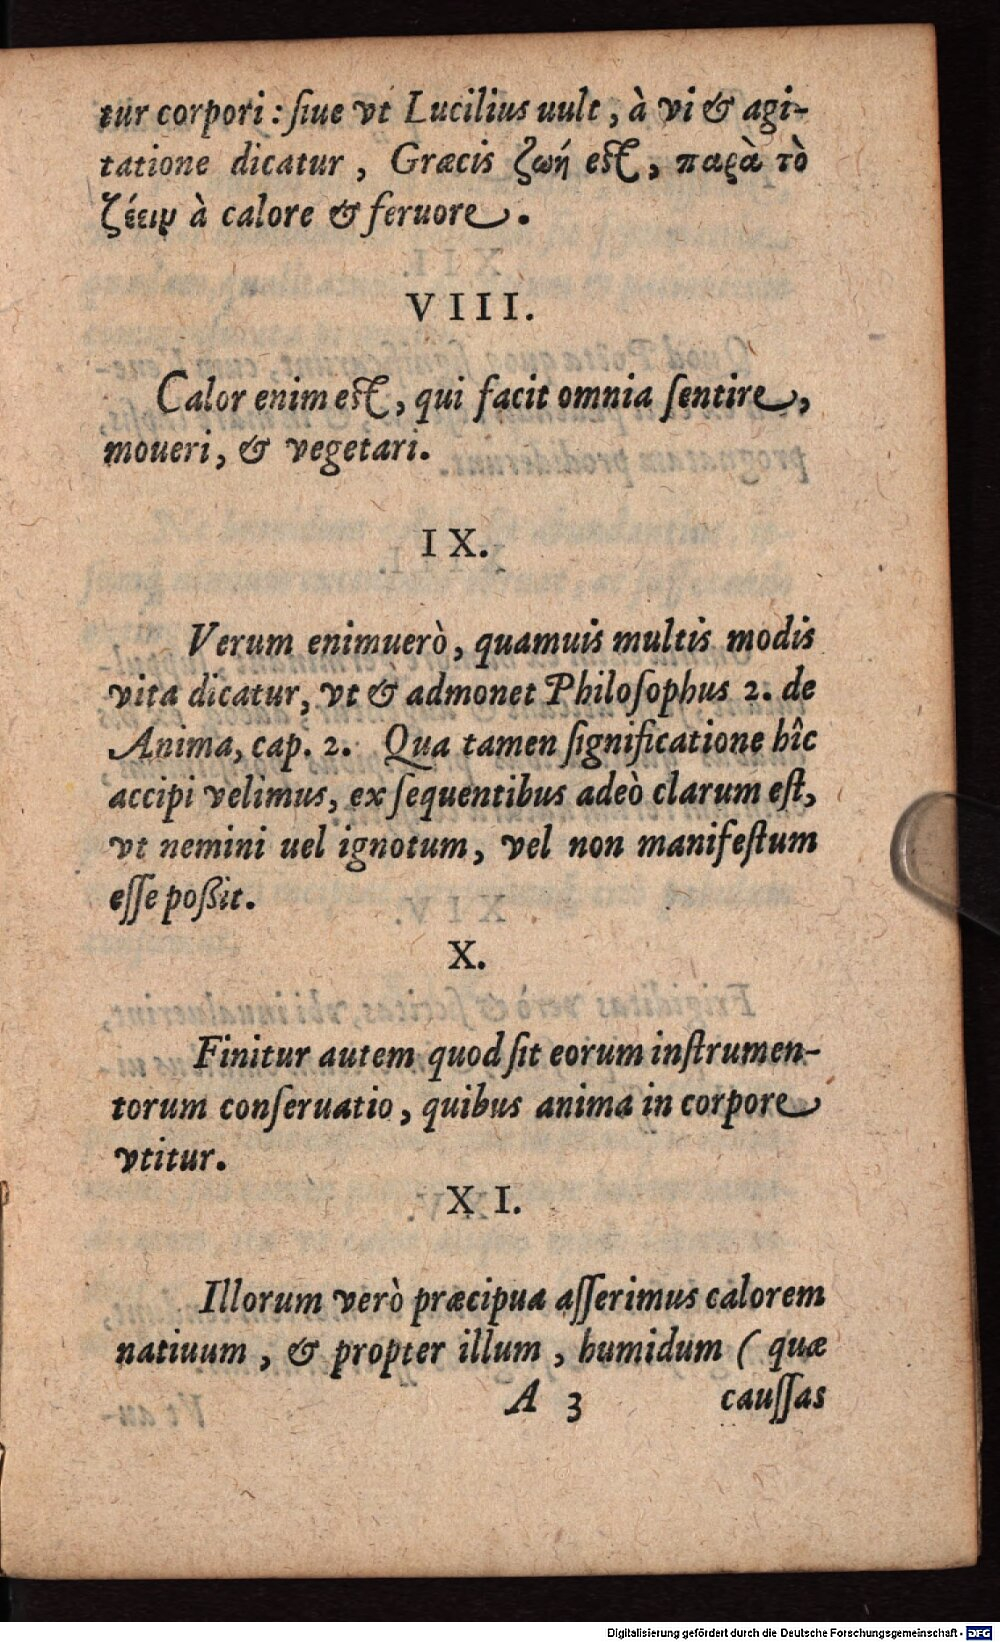 tur corpori: ſiue vt Lucilius uult, à vi & agi-
tatione dicatur, Græcis ζωή eſt, παρὰ τὸ
ζέειν à calore & feruore.
VIII.
Calor enim eſt, qui facit omnia ſentire,
moueri, & vegetari.
IX.
Verum enimuerò, quamuis multis modis
vita dicatur, vt & admonet Philoſophus 2. de
Anima, cap. 2. Qua tamen ſignificatione hîc
accipi velimus, ex ſequentibus adeò clarum eſt,
vt nemini uel ignotum, vel non manifeſtum
eſſe poßit.
X.
Finitur autem quod ſit eorum inſtrumen-
torum conſeruatio, quibus anima in corpore
vtitur.
XI.
Illorum verò præcipua aſſerimus calorem
natiuum, & propter illum, humidum (quæ
A 3 cauſſas
Digitalisierung gefördert durch die Deutsche Forschungsgemeinschaft - DFG